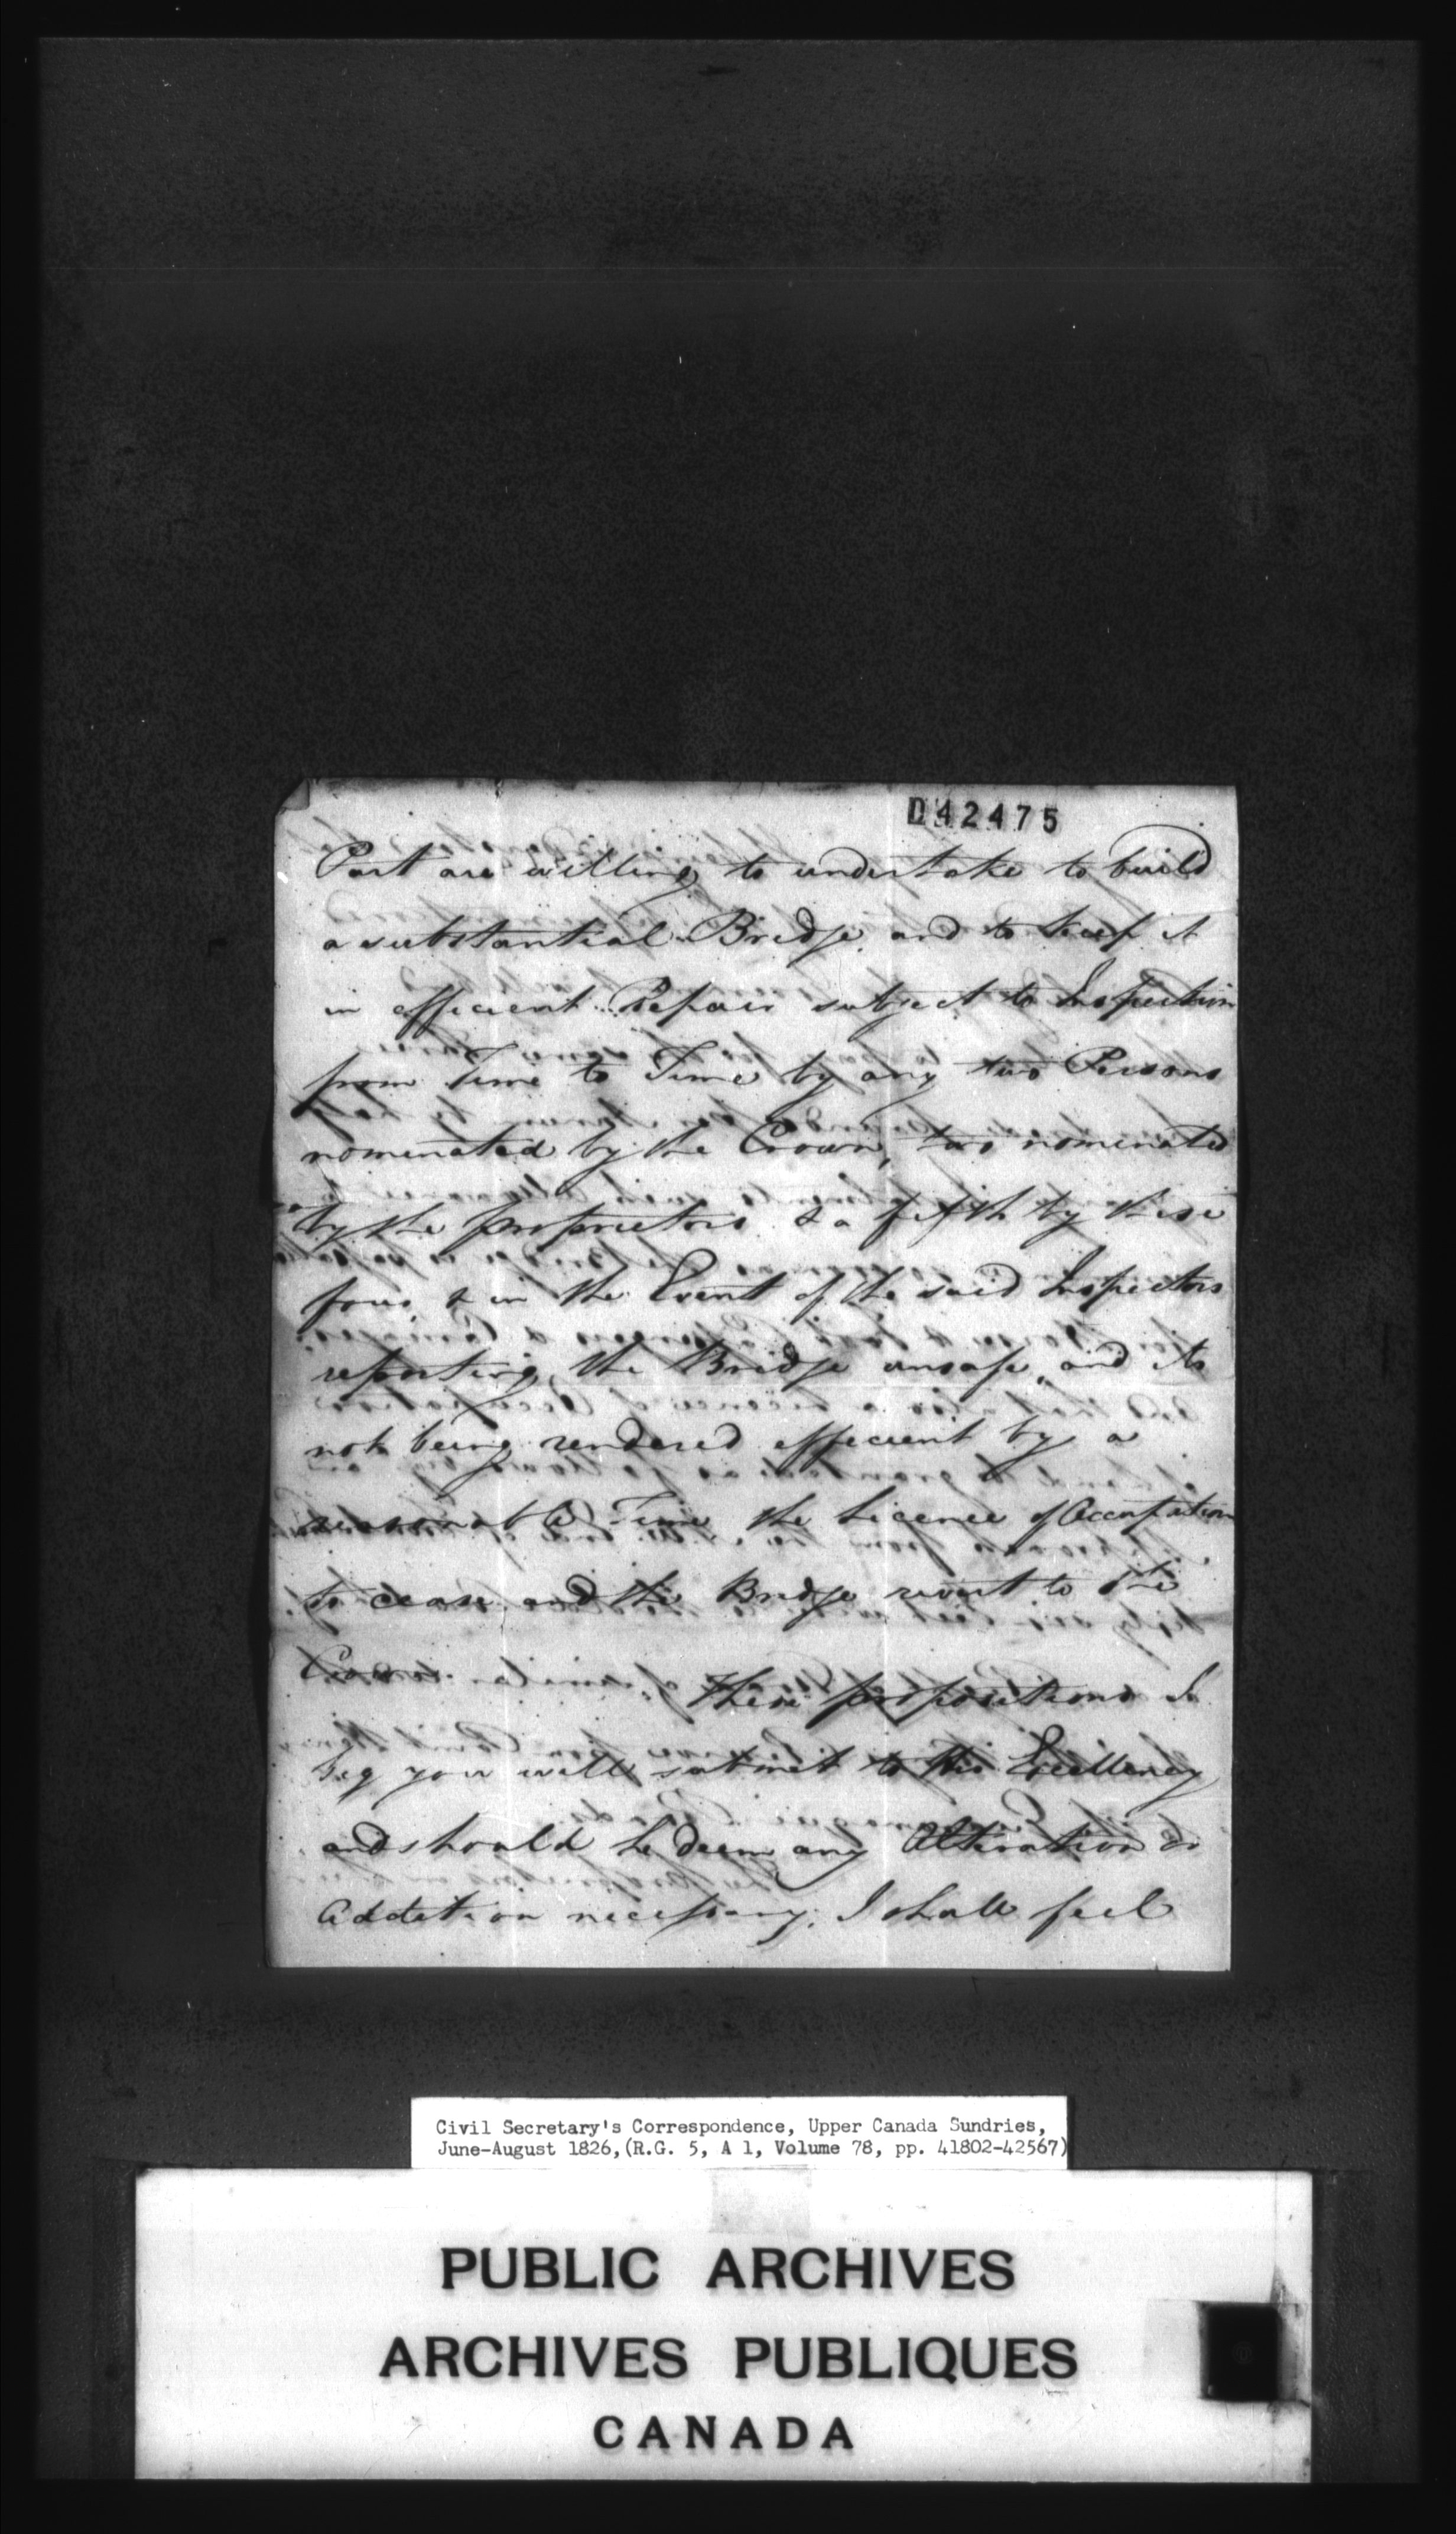 D42475
Part are willing to undertake to build
a substantial Bridge and to keep it
in efficient Repair subject to Inspection
from Time to Time by any two Persons
nominated by the Crown, two nominated
by the proprietors & a fifth by these
four & in the Event of the said Inspectors
reporting the Bridge unsafe, and its
not being rendered efficient by a
reasonable Time the Licence of Occupation
to cease and the Bridge revert to the
Crown.
These propositions I
beg you will submit to His Excellency
and should he deem any Alteration or
Addition necessary, I shall feel
Civil Secretary's Correspondence, Upper Canada Sundries,
June-August 1826, (R.G. 5, A 1, Volume 78, pp. 41802-42567)
PUBLIC ARCHIVES
ARCHIVES PUBLIQUES
CANADA